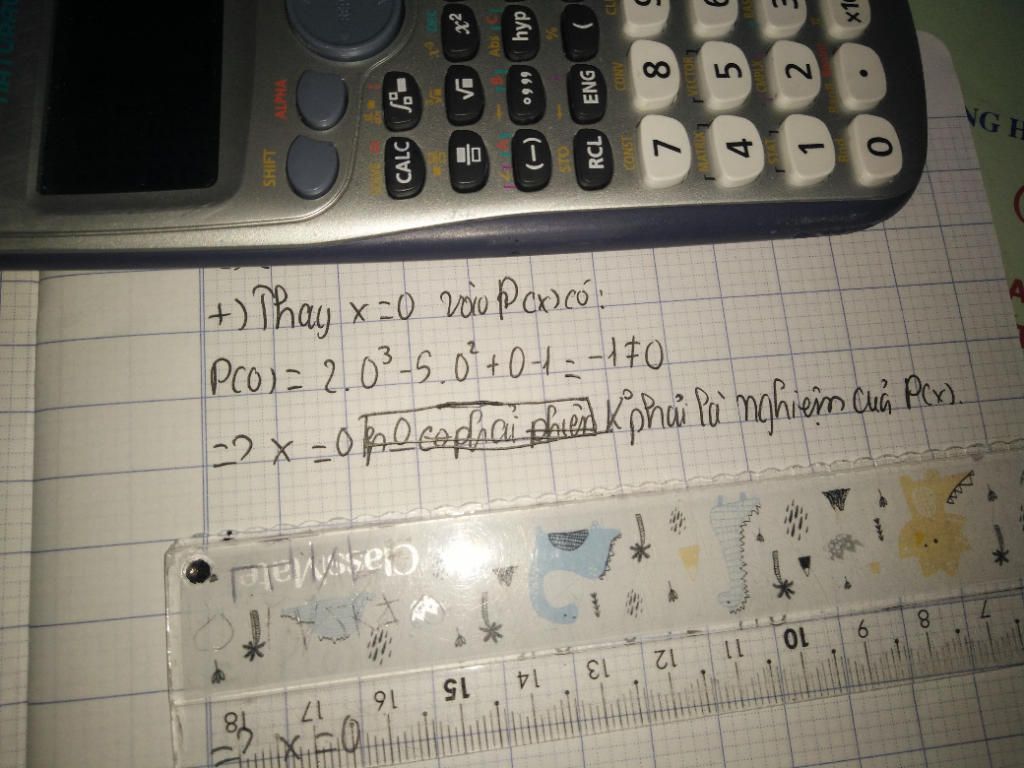 x²
hyp
(
9
6
3
x10
ALPHA
√
° , ,,
ENG
8
5
2
.
SHIFT
CALC
(–)
RCL
7
4
1
0
STO
CONST
CONV
MATRIX
VECTOR
STAT
NG H
+) Thay x=0 vào P(x) có:
P(0) = 2.0³ - 5.0² + 0 - 1 = -1 ≠ 0
=> x = 0 K⁰ phải là nghiệm của P(x).
ClassMate
18 17 16 15 14 13 12 11 10 9 8 7
=> x = 0